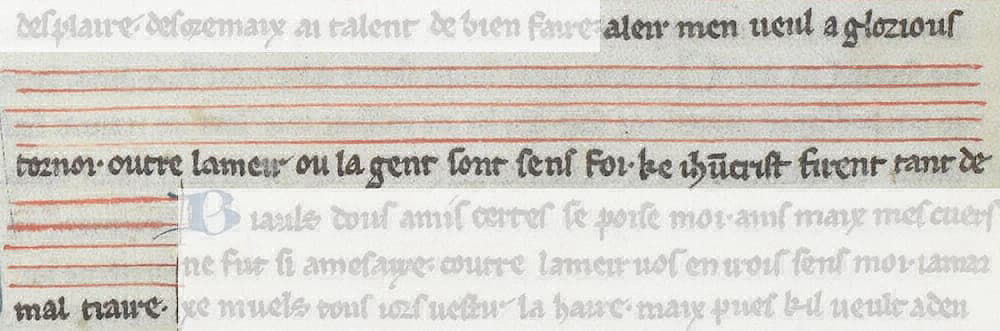 desplaire· desoremaix ai talent de bien faire· aleir men ueul a glorious
tornor· outre lameir ou la gent sont sens foi· ke ihūcrist firent tant de
mal traire·
Biauls dous amis certes se poise moi· ains maix mes cuers
ne fut si a mesaixe· coutre lameir uos en irois sens moi· iamaix
ke muels tous iors uestir la haire· maix pues kil ueult aden